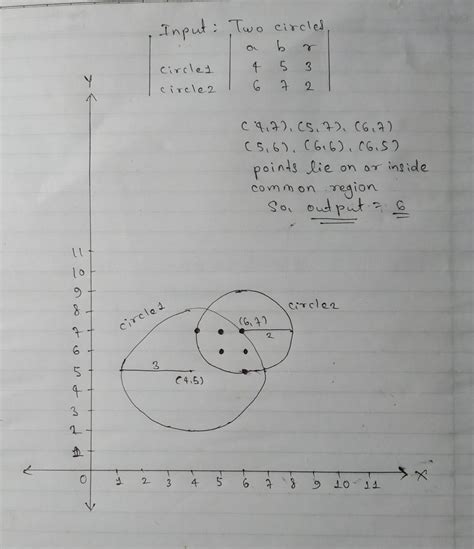 Input: Two circles
a b r
circle1 4 5 3
circle2 6 7 2
(4,7), (5,7), (6,7)
(5,6), (6,6), (6,5)
points lie on or inside
common region
So, output = 6
Y
11
10
9
8
7
6
5
4
3
2
1
circle1
circle2
(6,7)
2
3
(4,5)
0 1 2 3 4 5 6 7 8 9 10 11 X